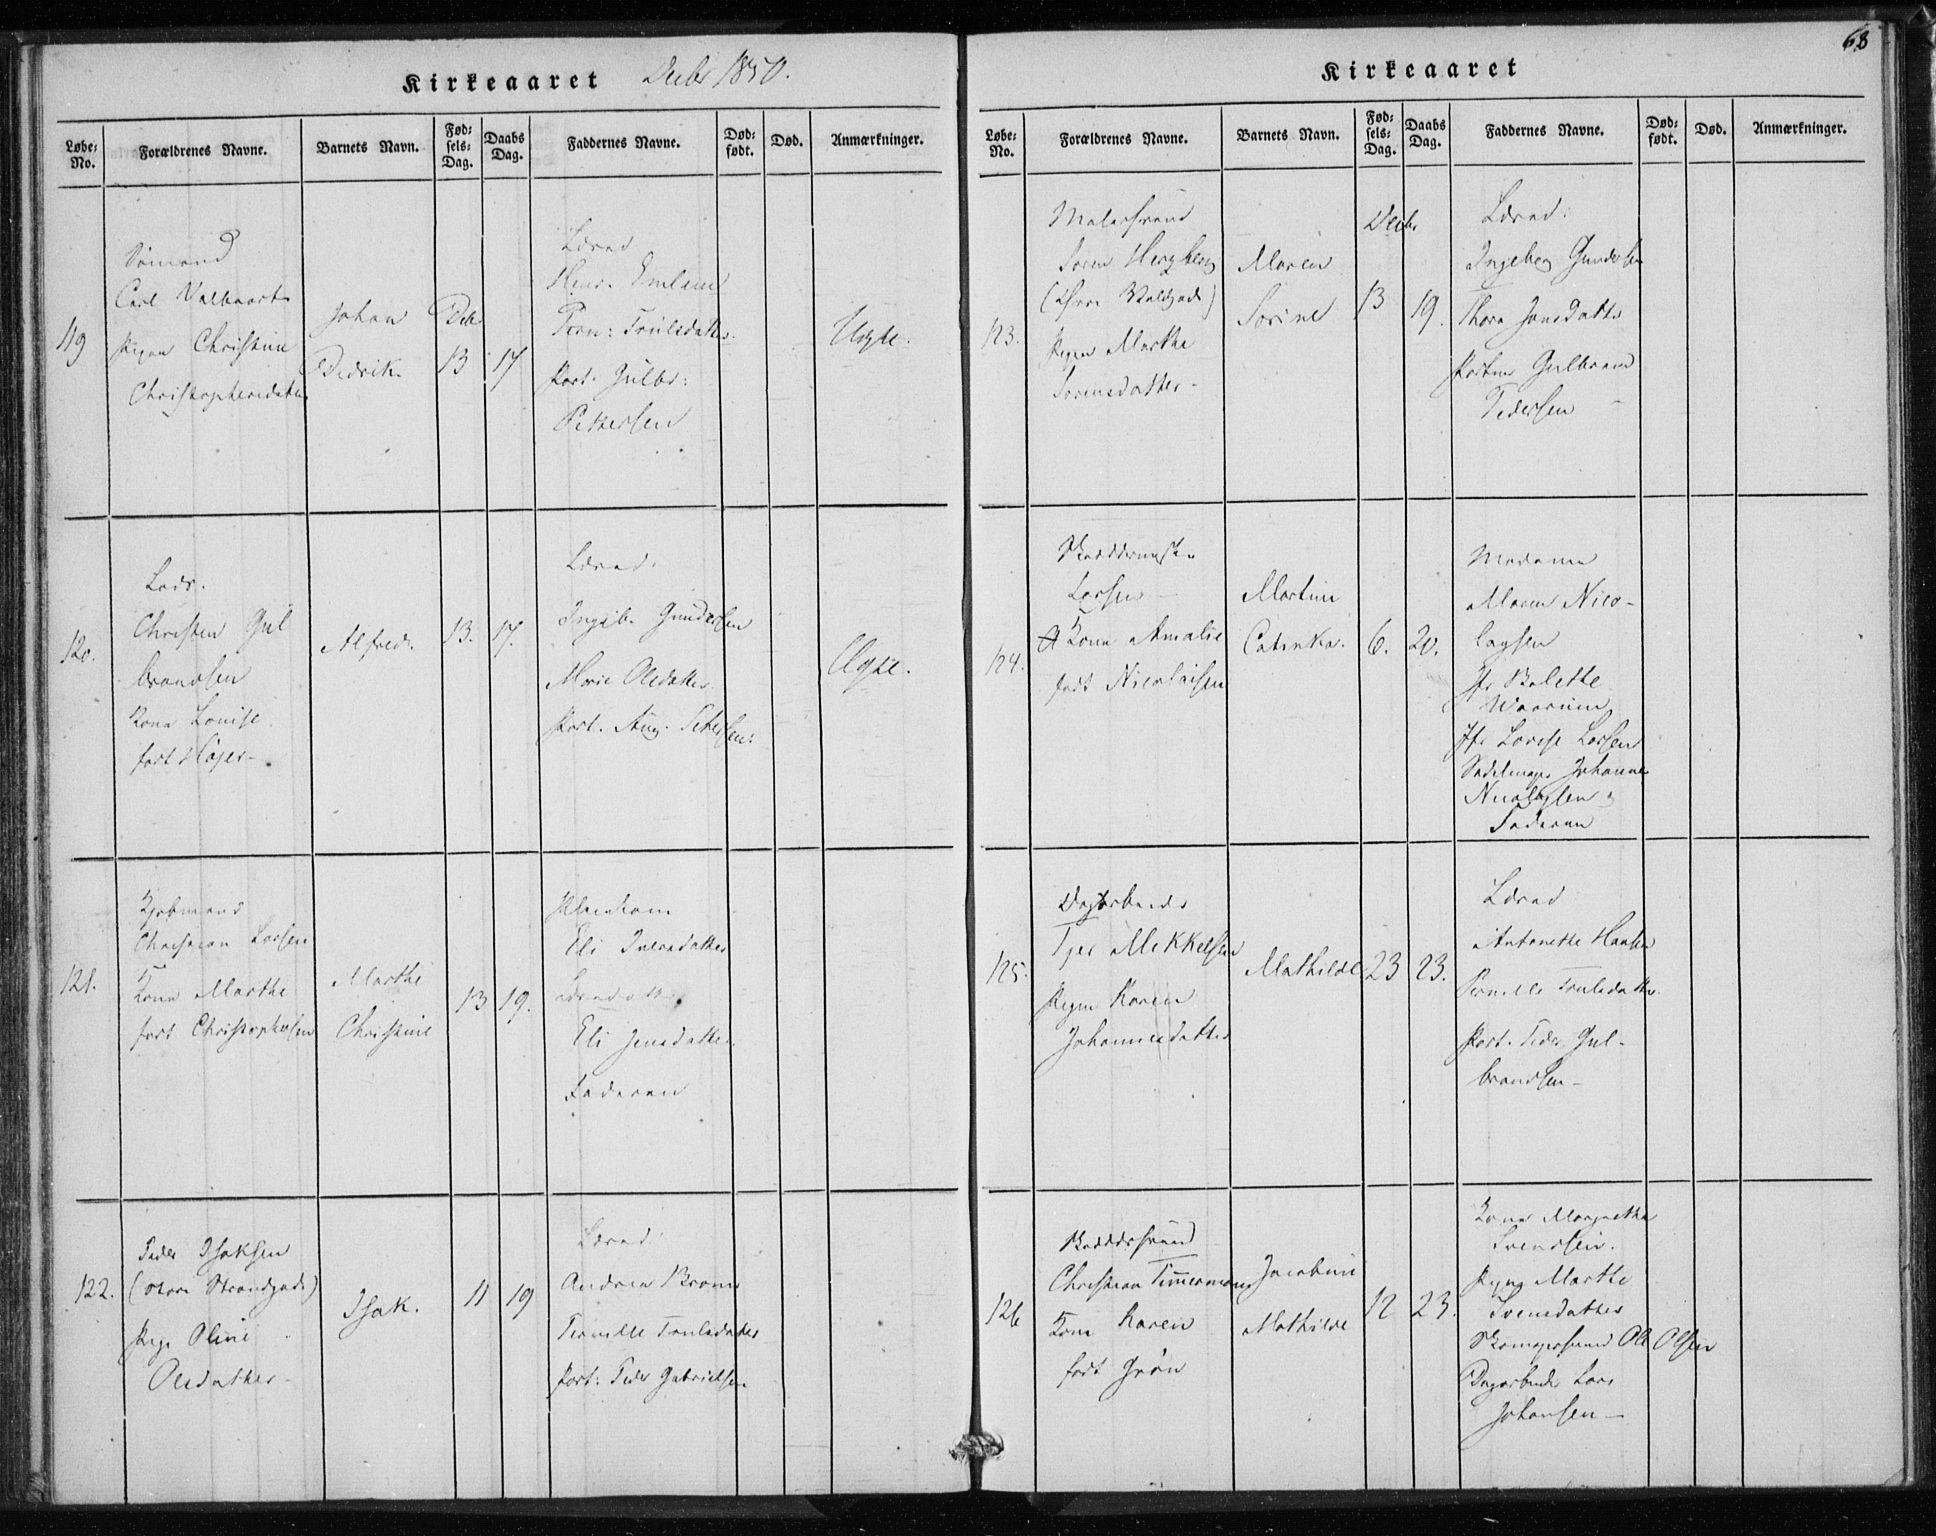 68
Kirkeaaret Decbr 1850.
Løbe-No. Forældrenes Navne. Barnets Navn. Fødsels-Dag. Daabs Dag. Faddernes Navne. Dødfødt. Død. Anmærkninger.
119
Sømand
Carl
Pigen Christine
Christophersdatter
Johan
Didrik
Decb
13
17
Pern: Trulsdatter
Port. Gulbr:
Pettersen
Uægte.
120.
Christen Gul
brandsen
Kone Louise
født Høyer
Alfred.
13.
17.
Ingeb. Gundersen
Marie Olsdatter
Port. Aug. Petersen:
Uægte.
121.
Kjøbmand
Christian Larsen
Kone Marthe
født Christophersen
Marthe
Christine
13
19.
Eli Iversdatter
Eli Jensdatter
Faderen
122.
Peder Isaksen
(store Strandgade)
Pige Oline
Olsdatter
Isak.
11
19
Andrea
Pernille Trulsdatter
Port: Peder Gabrielsen
Kirkeaaret
Løbe-No. Forældrenes Navne. Barnets Navn. Fødsels-Dag. Daabs Dag. Faddernes Navne. Dødfødt. Død. Anmærkninger.
123.
Malersvend
Søren Herzberg
Pigen Marthe
Sørensdatter
Maren
Sorine
Decbr
13
19.
Ingeborg Gundersen
Thora Jensdatter
Portner Gulbrand
Pedersen
124.
Larsen
Kone Amalie
født Nicolaisen
Martine
Catinka.
6.
20.
Madame
Maren Nico-
laysen
Jfr Bolette
Jfr Lovise Larsen
Sadelmager Johannes
Nicolaysen
Faderen
125.
Dagarbeider
Mikkelsen
Pigen Karen
Johannesdatter
Mathilde
23
23.
Antonette Hansen
Pernille Trulsdatter
Port. Peder Gul-
brandsen
126
Christian Timmermann
Kone Karen
født Grøn
Jacobine
Mathilde
12
23.
Kone Margrethe
Svendsen.
Pige Marthe
Svensdatter
Skomagersvend Ole Olsen
Dagarbeider Lars
Johansen